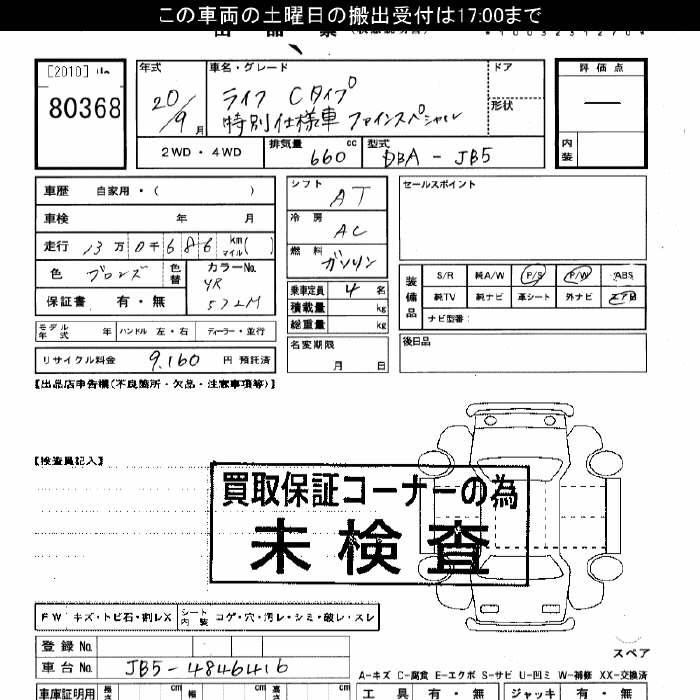 この車両の土曜日の搬出受付は17:00まで
[2010]
80368
年式
20/9月
車名・グレード
ライフ Cタイプ
特別仕様車 ファインスペシャル
ドア
形状
評価点
内装
2WD・4WD
排気量 660 cc
型式 DBA-JB5
車歴 自家用・( )
車検 年 月
走行 13万0千686 km マイル( )
色 ブロンズ 色替
カラーNo. YR 572M
保証書 有・無
モデル年式 年 ハンドル 左・右 ディーラー・並行
リサイクル料金 9,160 円 預託済
シフト AT
冷房 AC
燃料 ガソリン
乗車定員 4 名
積載量 kg
総重量 kg
名変期限 月 日
セールスポイント
装備品
S/R 純A/W P/S P/W ABS
純TV 純ナビ 革シート 外ナビ エアB
ナビ型番:
後日品
【出品店申告欄(不良箇所・欠品・注意事項等)】
【検査員記入】
買取保証コーナーの為
未検査
FW キズ・トビ石・割レX
シート内装 コゲ・穴・汚レ・シミ・破レ・スレ
登録No.
車台No. JB5-4846416
スペア
A-キズ C-腐食 E-エクボ S-サビ U-凹ミ W-補修 XX-交換済
車庫証明用 長さ cm 幅 cm 高さ cm
工具 有・無 ジャッキ 有・無